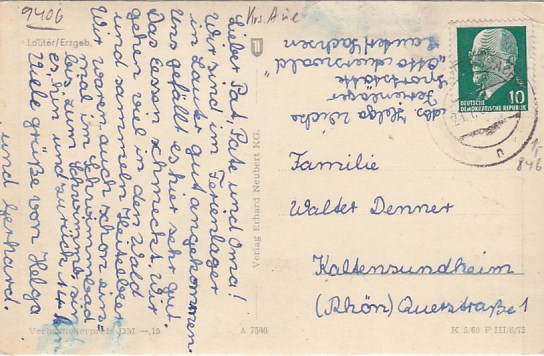 9406
Krs. Aue
Lauter/Erzgeb.
Lieber Pat, Pate und Oma!
Wir sind im Ferienlager
in Lauter gut angekommen.
Uns gefällt es hier sehr gut.
Das Essen schmeckt. Wir
gehen viel in den Wald
und sammeln Heidelbeer
Wir waren auch schon ein
mal im Schwimmbad
bis zum Schwimmen
es hin und zurück
Viele grüße von Helga
und Gerhard.
Verbraucherpreis DM —,15
A 7546
Verlag Erhard Neubert KG.
Abs. Helga
Ferienlager
Sportstätte
"Otto Grunwald"
Lauter/Sachsen
10
DEUTSCHE
DEMOKRATISCHE REPUBLIK
Familie
Walter Denner
Kaltensundheim
(Rhön) Querstraße 1
K 2/60 F III/6/75